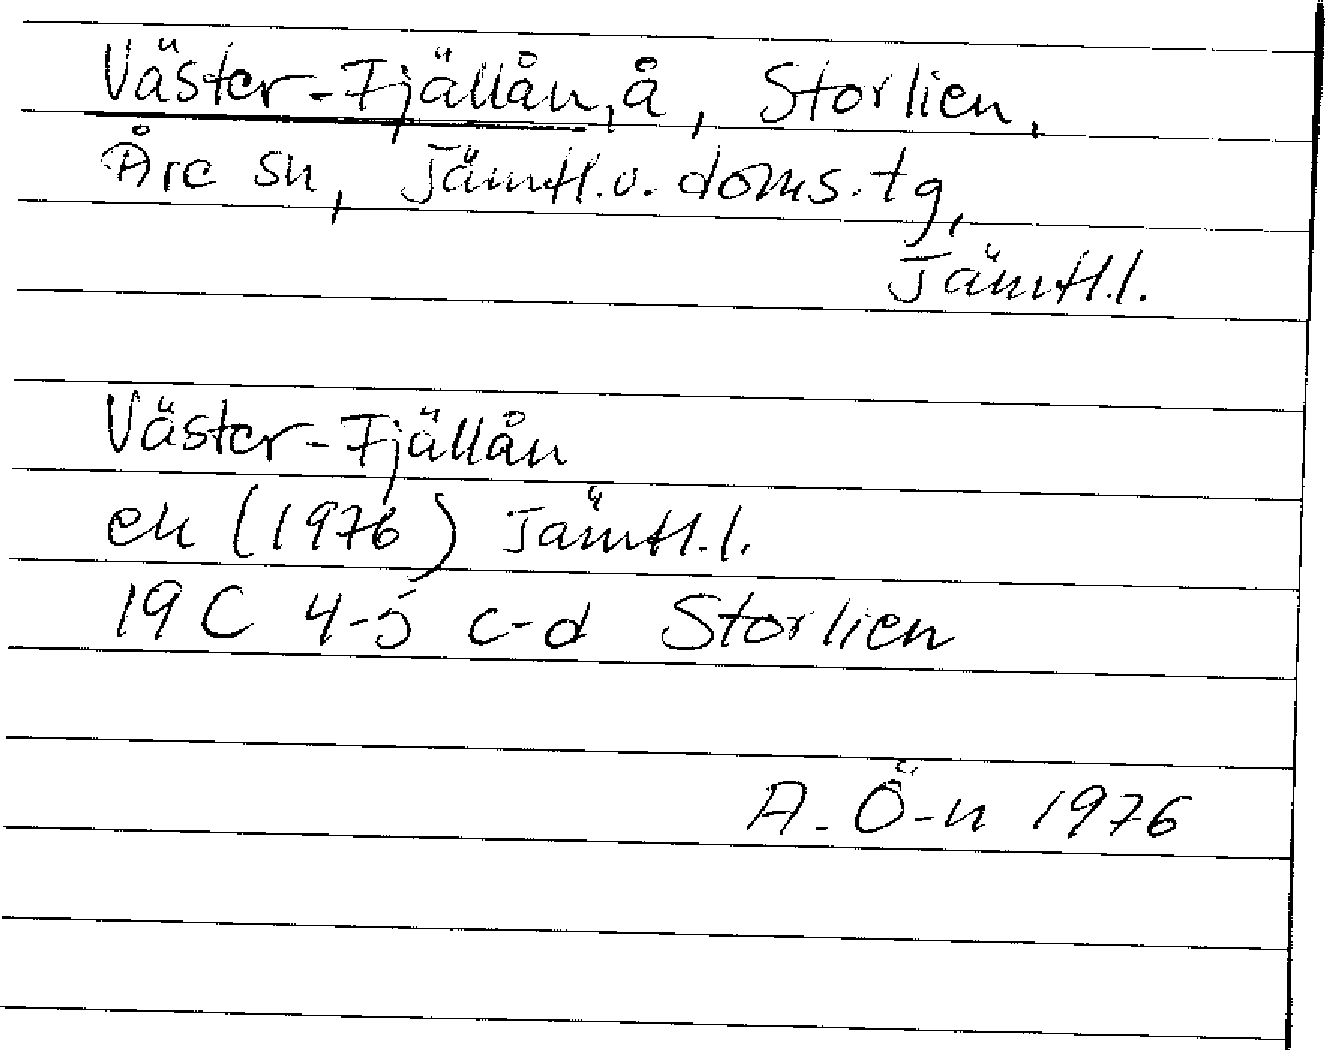 Väster-Fjällån, å, Storlien,
Åre sn, Jämtl.v. doms.tg,
Jämtl.l.
Väster-Fjällån
ek (1976) Jämtl.l.
19 C 4-5 c-d Storlien
A. Ö-n 1976